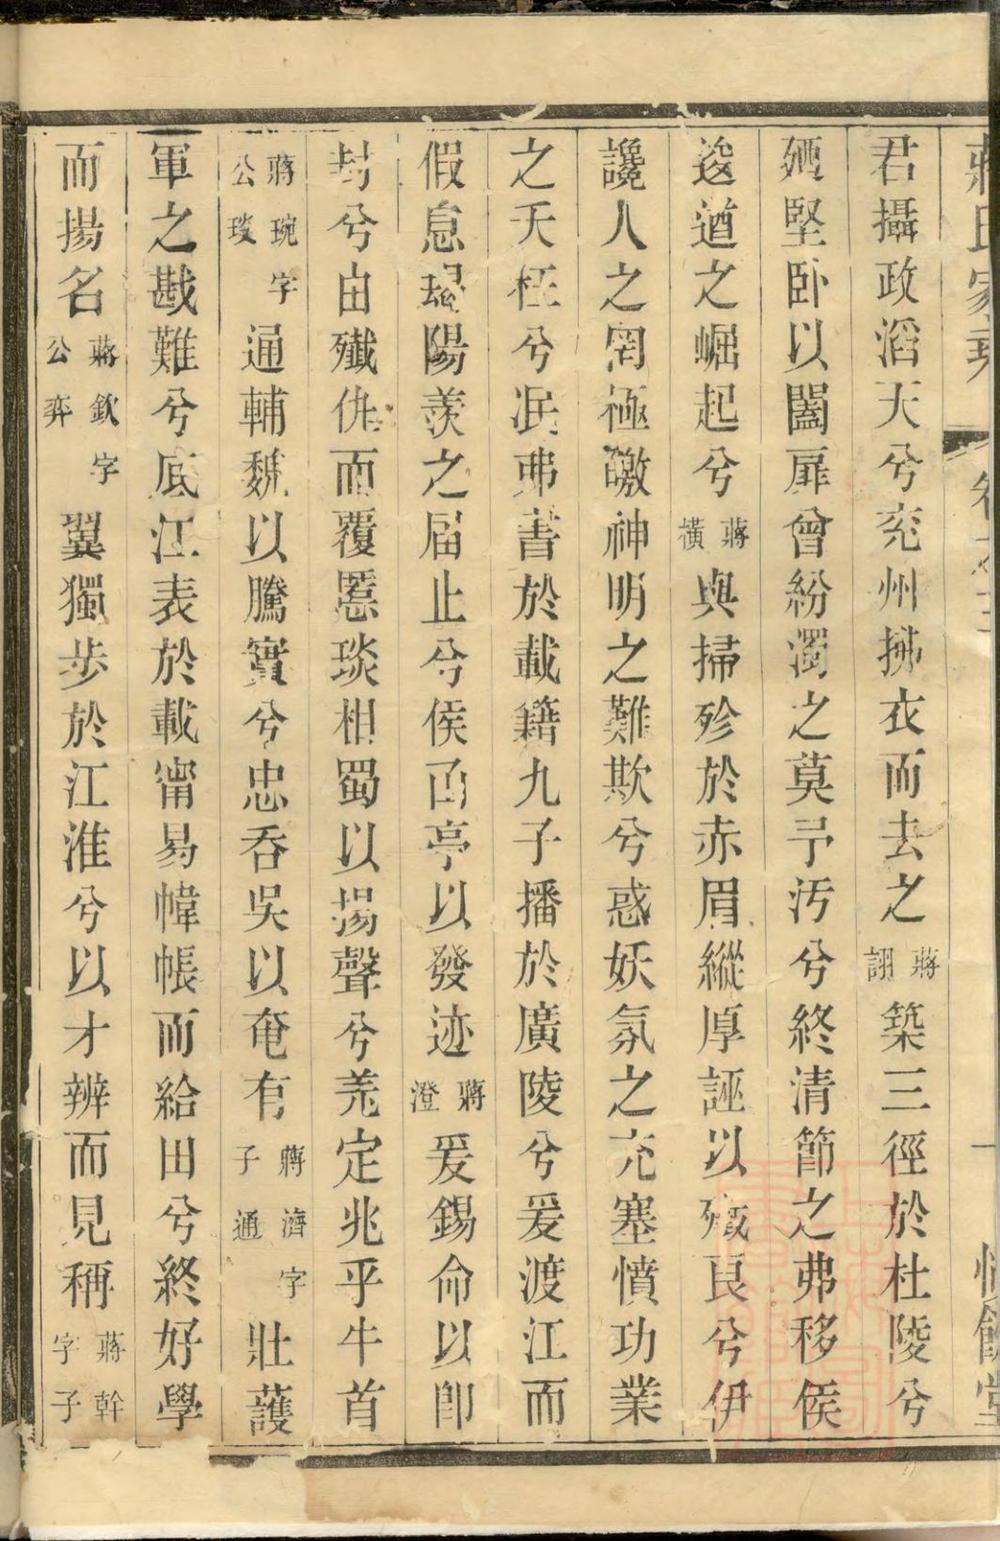 蔣氏家乘
君攝政滔天兮兖州拂衣而去之蔣詡築三徑於杜陵兮
廼堅卧以闔扉曾紛濁之莫予汚兮終清節之弗移侯
逡遒之崛起兮蔣橫與掃殄於赤眉縱厚誣以殲良兮伊
讒人之罔極曒神明之難欺兮惑妖氛之充塞憤功業
之夭枉兮泯弗書於載籍九子播於廣陵兮爰渡江而
假息陽羨之届止兮侯㕠亭以發迹蔣澄爰錫命以卽
封兮由殲仇而覆慝琰相蜀以揚聲兮羌定兆乎牛首
蔣琬字公琰通輔魏以騰實兮忠吞吳以奄有蔣濟字子通壯護
軍之戡難兮底江表於載甯易幃帳而給田兮終好學
而揚名蔣欽字公弈翼獨步於江淮兮以才辨而見稱蔣幹字子